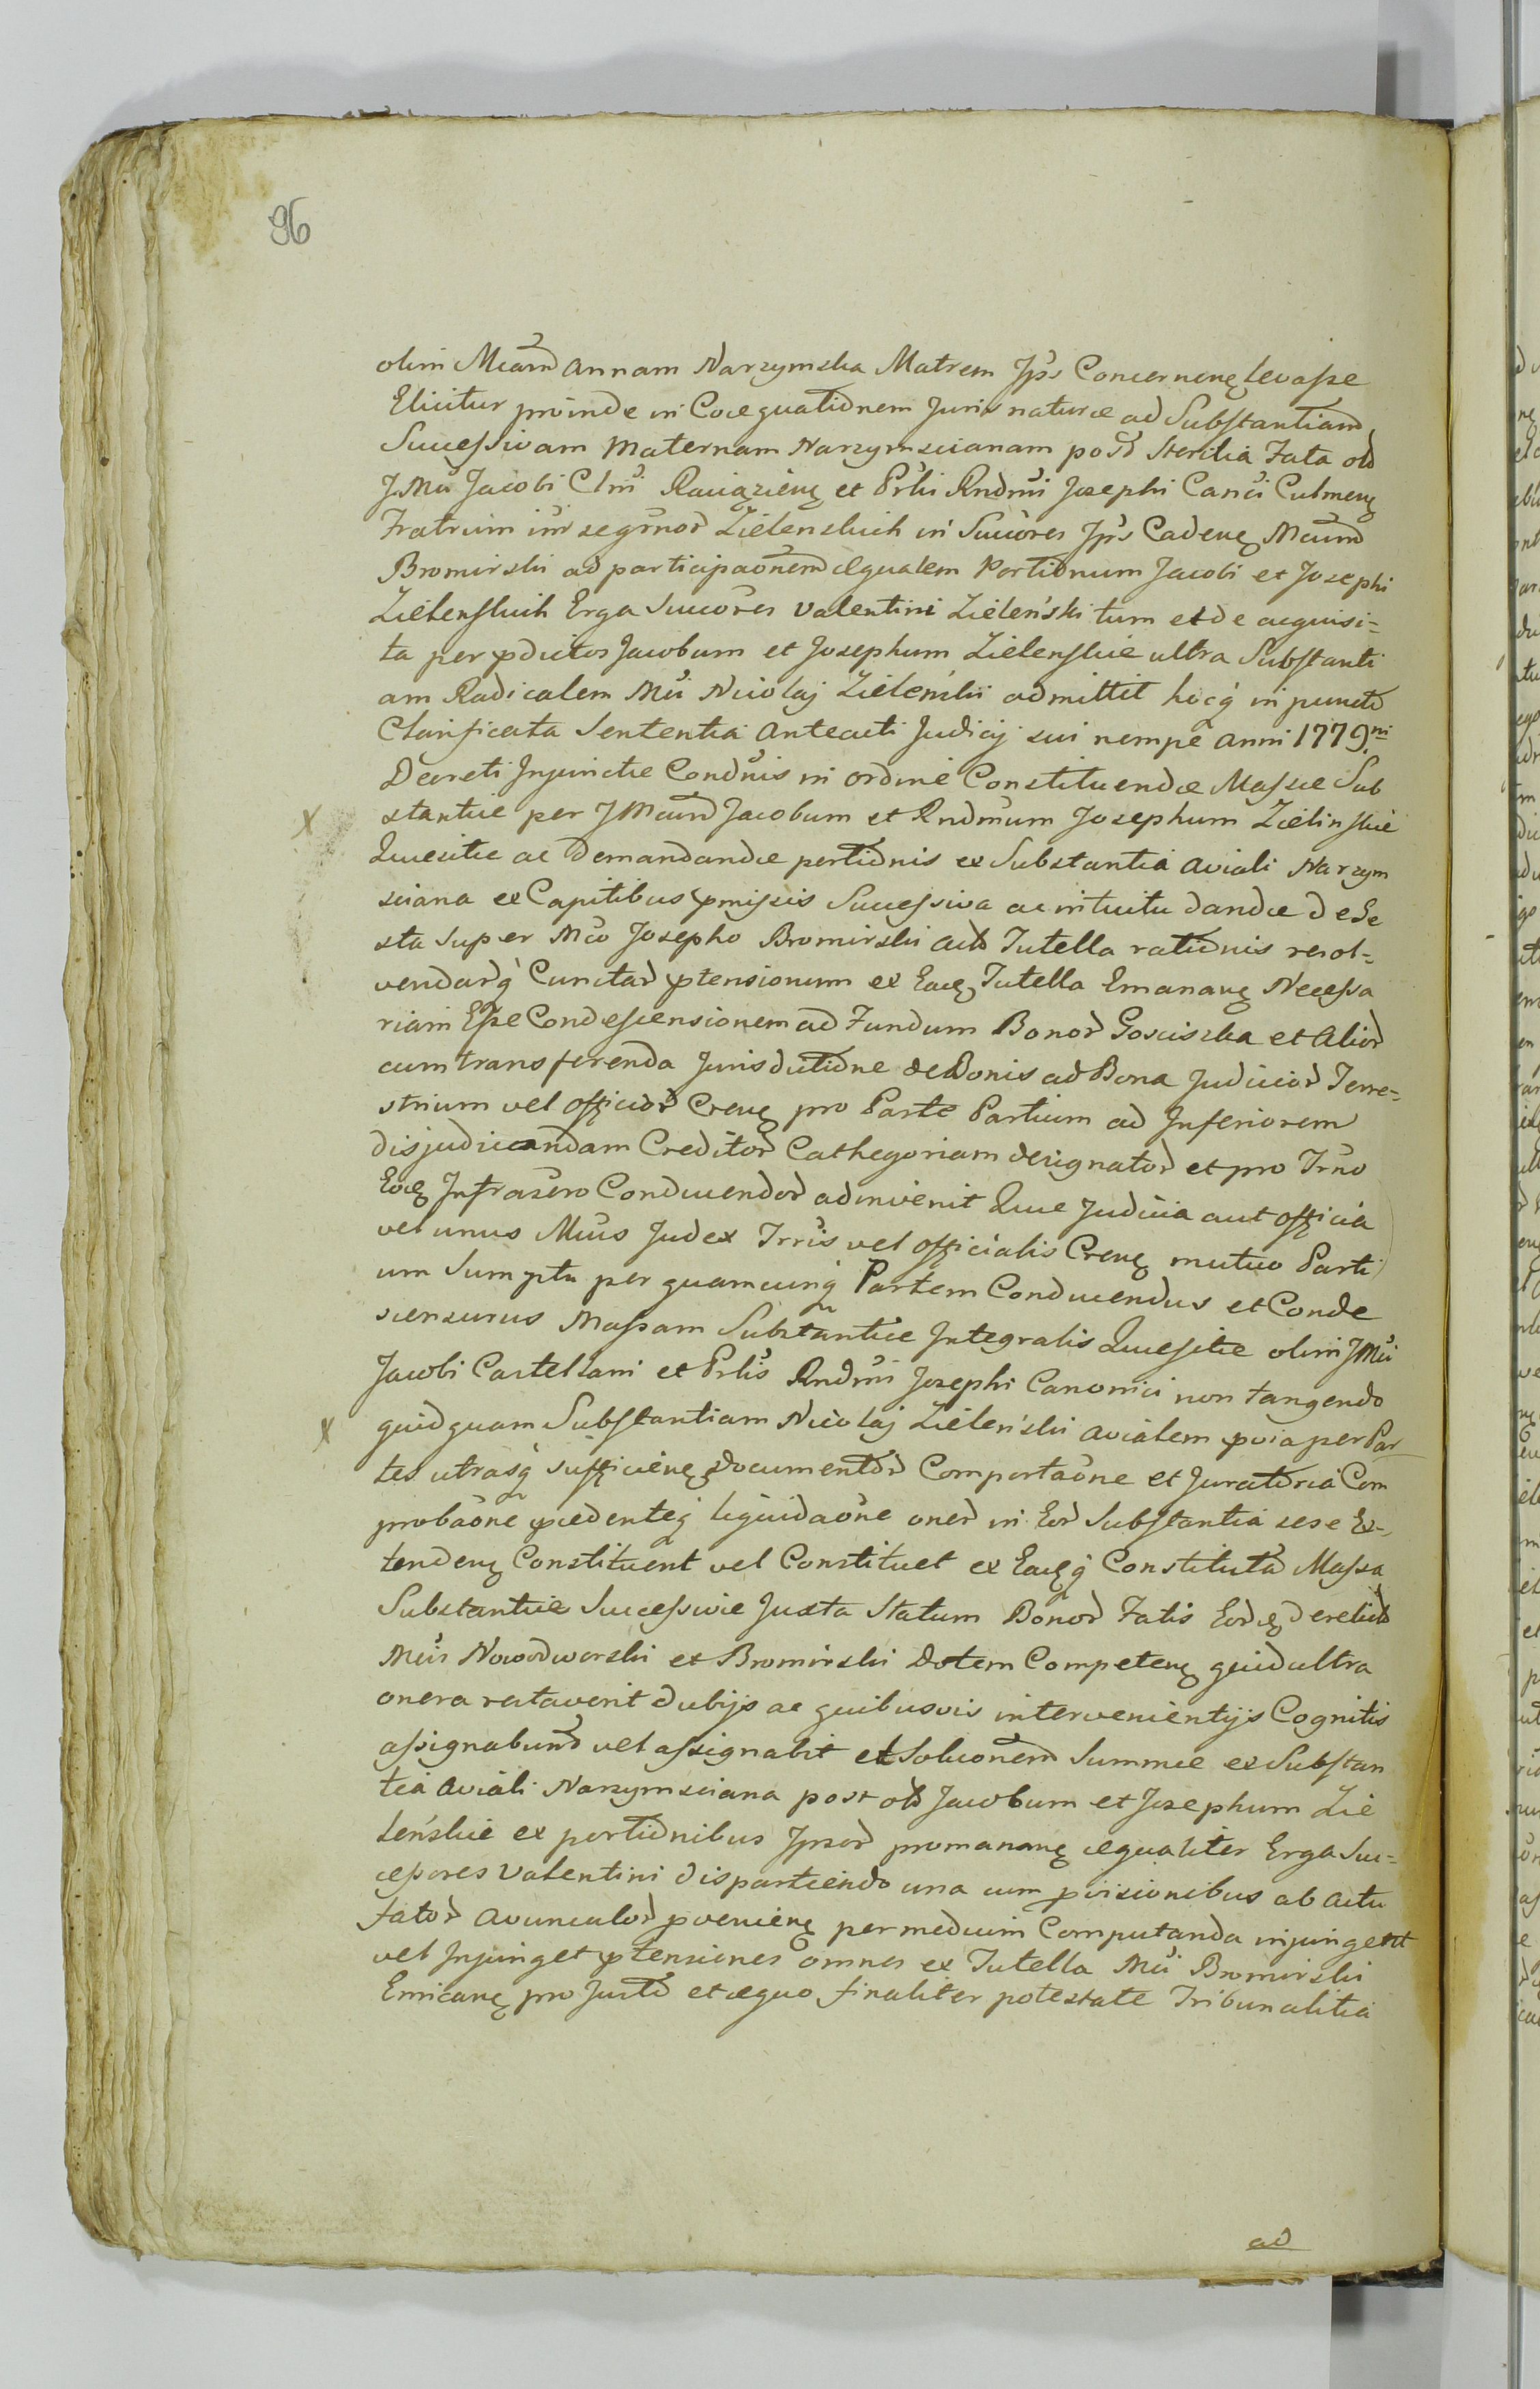 96
olim Mcam Annam Narzymska Matrem Jps Concernenę levasse
Elicitur proinde in Coæquationem Juris naturæ ad Substantiam
Successivam Maternam Narzymscianam post sterilia Fata olo
J. Mci Jacobi Clni Raciązienę et Prlis Rndmi Josephi Canci Culmenę
Fratrum inr se grnor Zielenskich in Succores Jps Cadenę Mcum
Bromirski ad participaonem æqualem Portionum Jacobi et Josephi
Zielenskich Erga Succores Valentini Zieleński tum et de acquisi=
ta per pdictos Jacobum et Josephum Zielenskie ultra Substanti
am Radicalem Mci Nicolaj Zieleński admittit hocq in puncto
Clarificata Sententia Anteacti Judicij sui nempe Anni 1779ni
Decreti Injunctæ Condnis in ordine Constituendæ Massæ Sub
stantiæ per J Mcum Jacobum et Rndmum Josephum Zielinskie
Quæsitæ ac demandandæ portionis ex Substantia Aviali Narzym
sciana ex Capitibus pmissis Successiva ac intuitu dandæ de Ge
sta super Mco Josepho Bromirski acto Tutella rationis resol=
vendarq Cunctar ptensionum ex Eadę Tutella Emananę Necessa
riam Esse Condescensionem ad Fundum Bonor Gosciszka et Alior
cum transferenda Jurisdictione de Bonis ad Bona Judicior Terre=
strium vel Officior Crenę pro Parte Partium ad Inferiorem
disjudicandam Creditor Cathegoriam designator et pro Trno
Eodę Infrascro Conducendor adinvenit Quæ Judicia aut officia
vel unus Mcus Judex Trris vel officialis Crenę mutuo Parti
um Sumptu per quamcunq Partem Conducendus et Conde
scensurus Massam Substantiæ Integralis Quæsitæ olim J Mci
Jacobi Castellani et Prlis Rndmi Josephi Canonici non tangendo
quidquam Substantiam Nicolaj Zieleński Avialem pvia per Par
tes utrasq sufficienę documentor Comportaone et Juratoria Com
probaone pcedenteq liquidaone oner in Eod Substantia sese Ex=
tendenę Constituent vel Constituet ex Eadęq Constituta Massa
Substantiæ Successivæ Juxta Statum Bonor Fatis Eordę derelict
Mcis Nowodworski et Bromirski Dotem Competenę quid ultra
onera restaverit dubijs ac quibusvis intervenientijs Cognitis
assignabunt vel assignabit et Soluonem Summæ ex Substan
tia Aviali Narzymsciana post olo Jacobum et Josephum Zie
leńskie ex portionibus Jpsor promananę æqualiter Erga Suc=
cessores Valentini dispartiendo una cum pvisionibus ab actu
Fator Avunculor pvenienę per medium Computanda injungent
vel Injunget ptensiones omnes ex Tutella Mci Bromirski
Emicanę pro Justo et æquo finaliter potestate Tribunalitia
ad